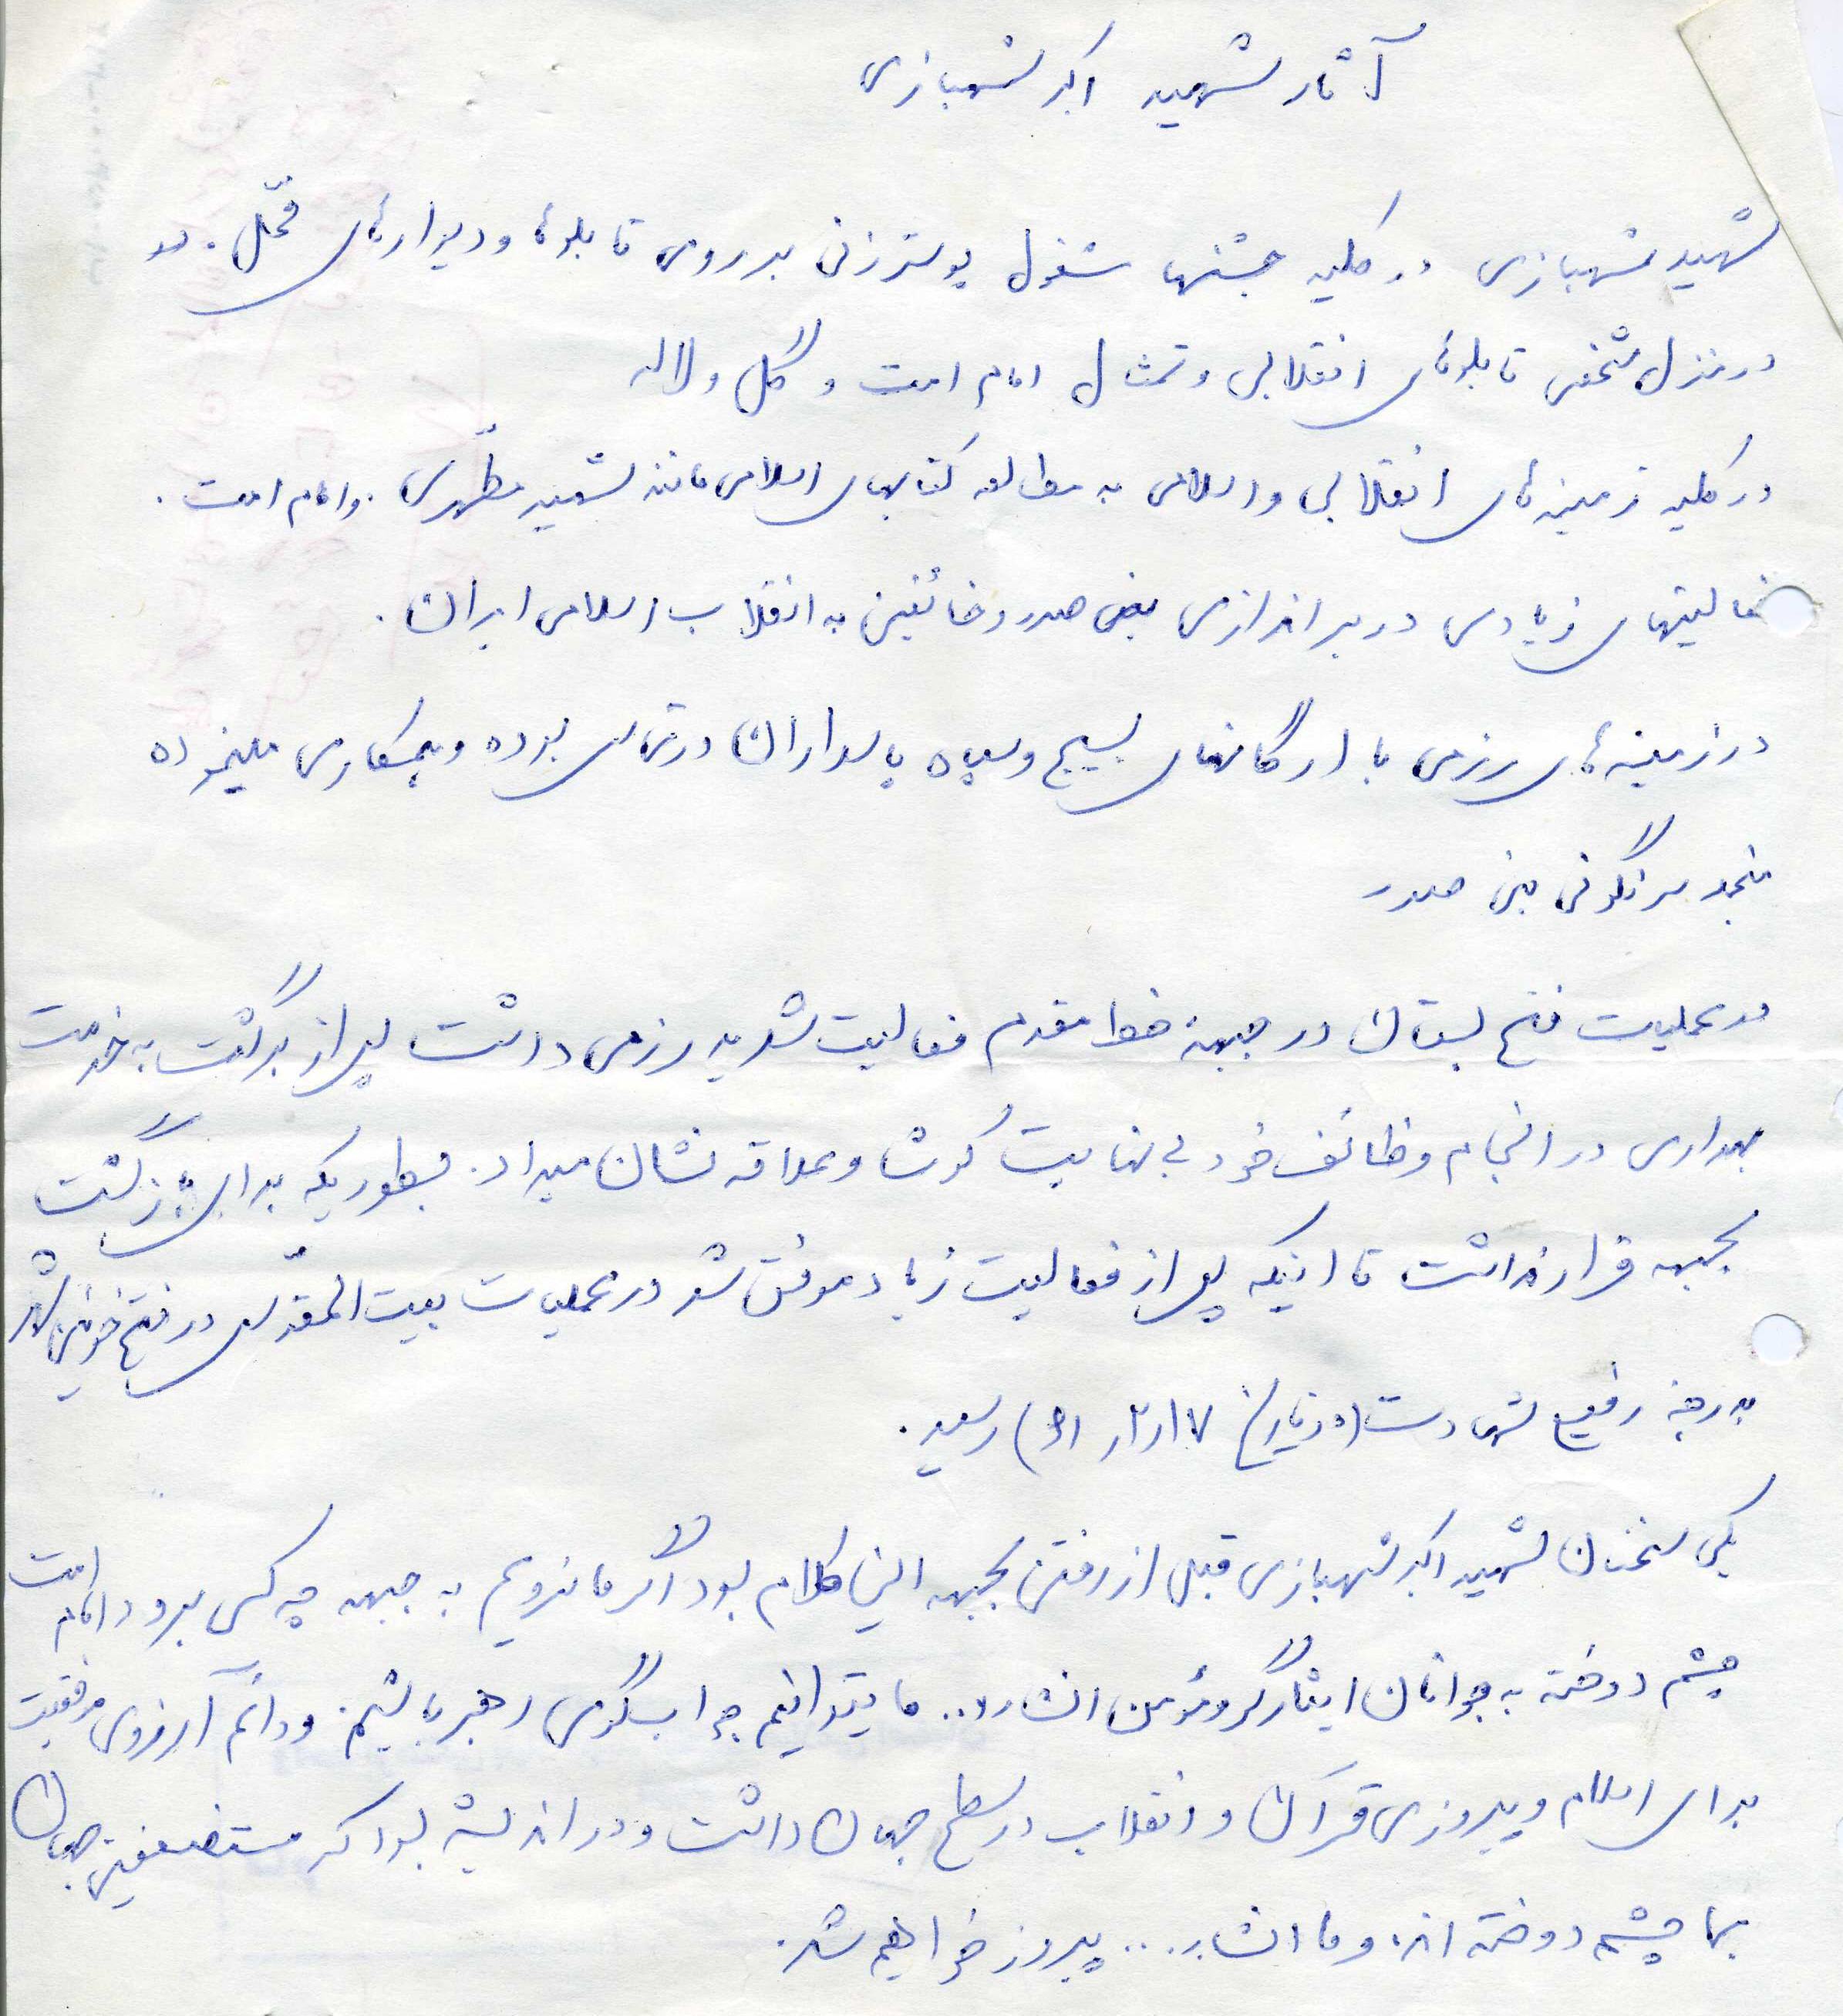 آثار شهید اکبر شهبازی
شهید شهبازی در کلیه جشنها مشغول پوستر زنی بر روی تابلوها و دیوارهای محّل.
در منزل شخصی تابلوهای انقلابی و تمثال امام امت و گل و لاله
در کلیه زمینه‌های انقلابی و اسلامی به مطالعه کتابهای اسلامی مانند شهید مطّهری. و امام امت.
فعالیتهای زیادی در براندازی بنی صدر و خائنین به انقلاب اسلامی ایران.
در زمینه‌های رزمی با ارگانهای بسیج و سپاه پاسداران در تماس بوده و همکاری مینموده
منجمد سرنگونی بنی صدر
در عملیت فتح بستان در جبهه خط مقدم فعالیت شدید رزمی داشت پس از برگشت به خدمت
بهداری در انجام وظائف خود بی نهایت کوشا و علاقه نشان میداد. بطوریکه برای بازگشت
بجبهه قرار نداشت تا اینکه پس از فعالیت زیاد موفق شد در عملیات بیت المقدّس در فتح خونین شهر
بدرجه رفیع شهادت (در تاریخ ۱۷ر۲ر۶۱) رسید.
یکی سخنان شهید اکبر شهبازی قبل از رفتن بجبهه این کلام بود اگر ما نرویم به جبهه چه کسی برود امام امت
چشم دوخته به جوانان ایثارگر و مؤمن انشاا... ما بتوانیم جوابگوی رهبر باشیم. و دائم آرزوی موفقیت
برای اسلام و پیروزی قرآن و انقلاب در سطح جهان داشت و در اندیشه بود که مستضعفین جهان
بما چشم دوخته اند. و ما انشاا... پیروز خواهیم شد.